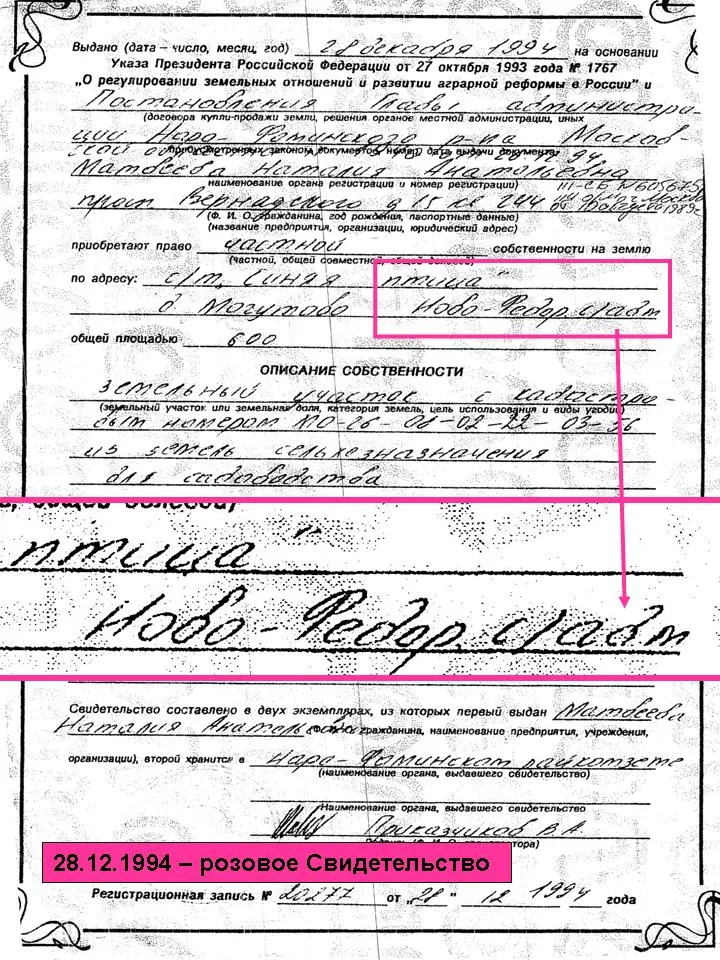 Выдано (дата – число, месяц, год) 28 декабря 1994 на основании
Указа Президента Российской Федерации от 27 октября 1993 года № 1767
„О регулировании земельных отношений и развитии аграрной реформы в России" и
Постановления Главы администра-
(договора купли-продажи земли, решения органов местной администрации, иных
ции Наро-Фоминского р-на Москов-
предусмотренных законом документов, номер, дата выдачи документа)
ской
Матвеева Наталия Анатольевна
наименование органа регистрации и номер регистрации) III-СБ № 605675
просп Вернадского д 15 кв 244
(Ф. И. О. гражданина, год рождения, паспортные данные)
(название предприятия, организации, юридический адрес)
приобретают право частной собственности на землю
(частной, общей совместной, общей долевой)
по адресу: с/т, Синяя птица"
д Могутово Ново-Федор. с/адм
общей площадью 600
ОПИСАНИЕ СОБСТВЕННОСТИ
земельный участок с кадастро-
(земельный участок или земельная доля, категория земель, цель использования и виды угодий)
вым номером МО-26-01-02-22-03-56
из земель сельхозназначения
для садоводства
птица"
Ново-Федор. с/адм
Свидетельство составлено в двух экземплярах, из которых первый выдан Матвеева
Наталия Анатольевна (Ф. И. О. гражданина, наименование предприятия, учреждения,
организации), второй хранится в Наро-Фоминском райкомземе
(наименование органа, выдавшего свидетельство)
Наименование органа, выдавшего свидетельство
Приказчиков В.А.
28.12.1994 – розовое Свидетельство
Регистрационная запись № 20277 от „28" 12 1994 года